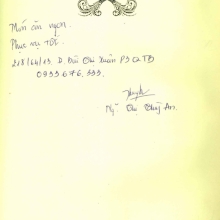 Món ăn ngon.
Phục vụ tốt.
218/64/13. D. Bùi Quí Xuân P3 Q TB
0933 676 333.
Ng̃ Thị Thúy An.